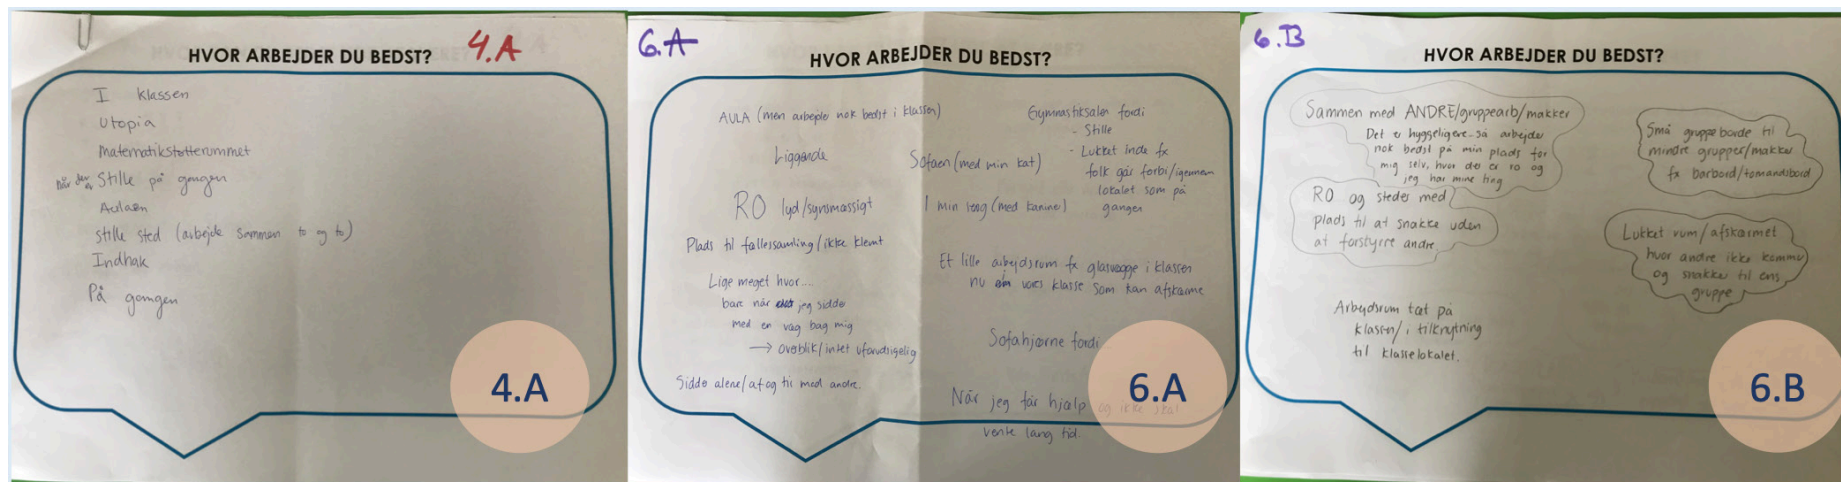 4.A
HVOR ARBEJDER DU BEDST?
I klassen
Utopia
Matematikstøtterummet
når der er Stille på gangen
Aulaen
stille sted (arbejde sammen to og to)
Indhak
På gangen
4.A
6.A
HVOR ARBEJDER DU BEDST?
AULA (men arbejder nok bedst i klassen)
Liggende
RO lyd/synsmæssigt
Plads til fællessamling/ikke klemt
Lige meget hvor....
bare når jeg sidder
med en væg bag mig
→ overblik/intet uforudsigelig
Sidde alene/af og til med andre.
Gymnastiksalen fordi
- Stille
- Lukket inde fx
folk går forbi/igennem
lokalet som på
gangen
Sofaen (med min kat)
I min seng (med kanine)
Et lille arbejdsrum fx glasvægge i klassen
nu i vores klasse som kan afskærme
Sofahjørne fordi
Når jeg får hjælp og ikke skal
vente lang tid.
6.A
6.B
HVOR ARBEJDER DU BEDST?
Sammen med ANDRE/gruppearb/makker
Det er hyggeligere - så arbejder
nok bedst på min plads for
mig selv, hvor der er ro og
jeg har mine ting
RO og steder med
plads til at snakke uden
at forstyrre andre
Arbejdsrum tæt på
klassen/i tilknytning
til klasselokalet.
Små gruppeborde til
mindre grupper/makker
fx barbord/tomandsbord
Lukket rum/afskærmet
hvor andre ikke kommer
og snakker til ens
gruppe
6.B